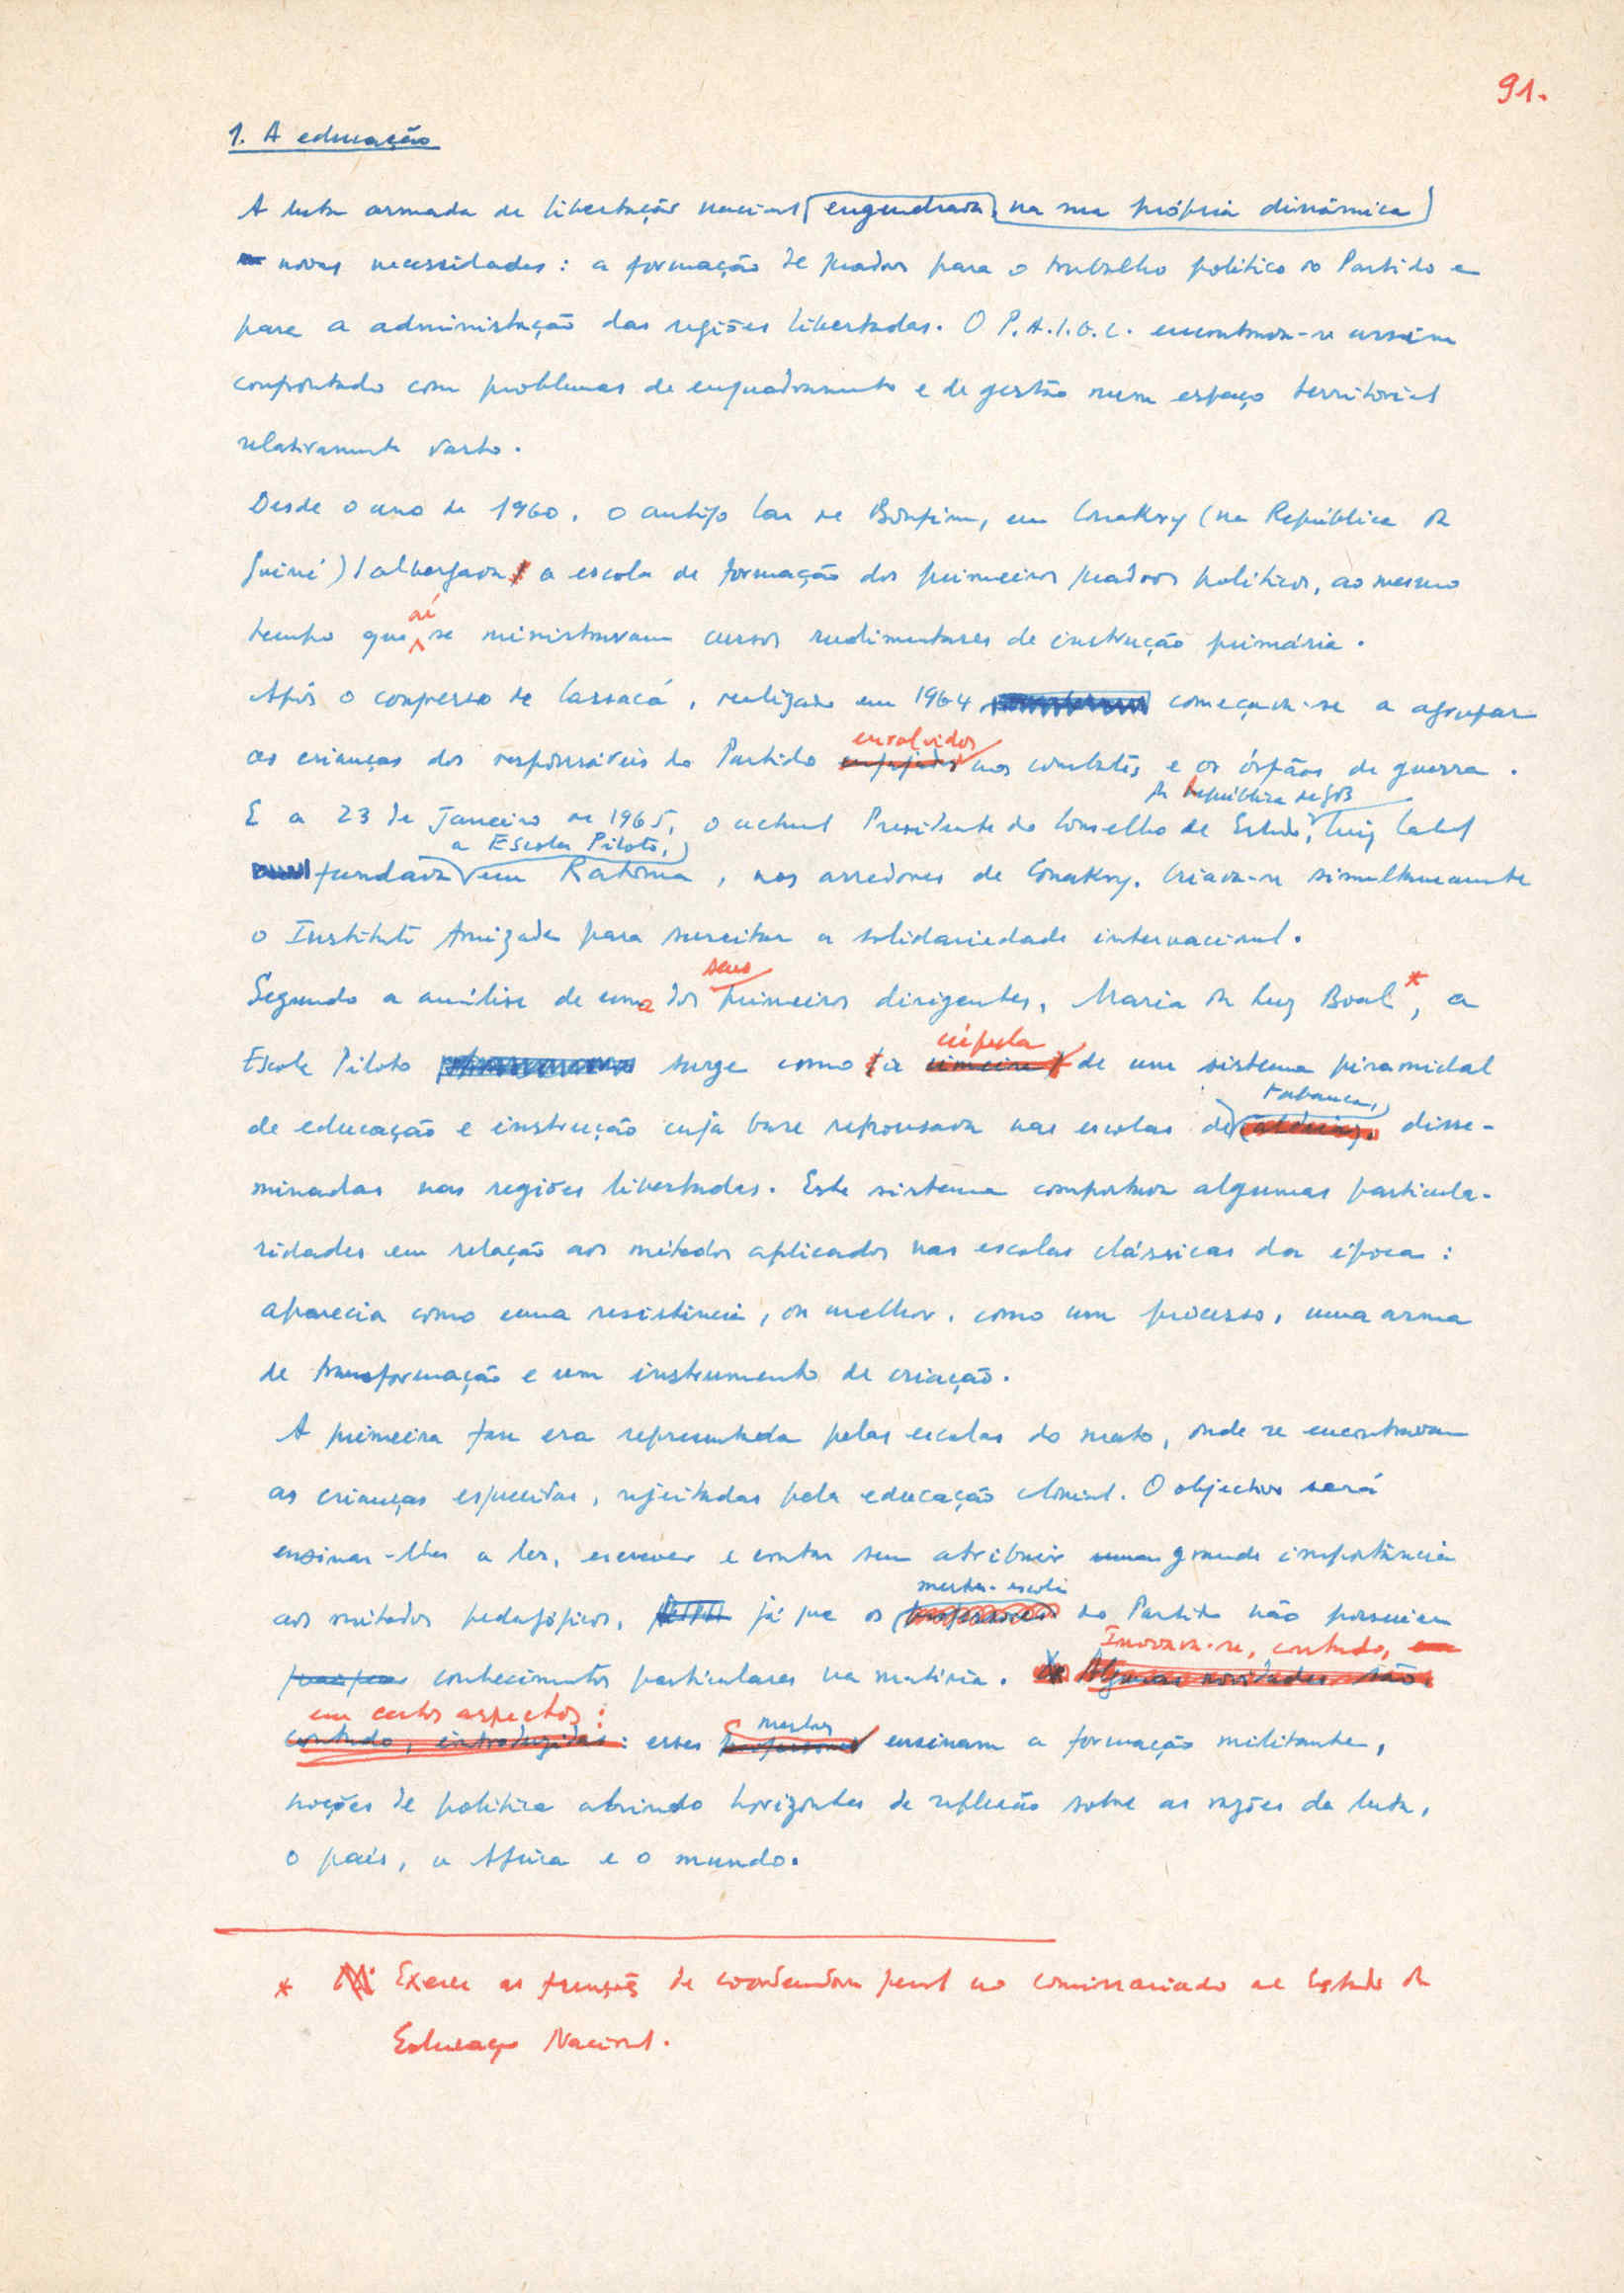 91.
1. A educação
A luta armada de libertação nacional engendrava, na sua própria dinâmica
novas necessidades: a formação de quadros para o trabalho político do Partido e
para a administração das regiões libertadas. O P.A.I.G.C. encontrava-se assim
confrontado com problemas de enquadramento e de gestão num espaço territorial
relativamente vasto.
Desde o ano de 1960, o antigo lar de Bonfim, em Conakry (na República da
Guiné) albergava a escola de formação dos primeiros quadros políticos, ao mesmo
tempo que aí se ministravam cursos rudimentares de instrução primária.
Após o congresso de Cassacá, realizado em 1964 começava-se a agrupar
as crianças dos responsáveis do Partido envolvidos nos combates e os órfãos de guerra.
da República da GB
E a 23 de Janeiro de 1965, o actual Presidente do Conselho de Estado, Luiz Cabral
a Escola Piloto,
fundava em Ratoma, nos arredores de Conakry. Criava-se simultaneamente
o Instituto Amizade para suscitar a solidariedade internacional.
Segundo a análise de uma dos seus primeiros dirigentes, Maria da Luz Boal*, a
Escola Piloto surge como a cúpula de um sistema piramidal
de educação e instrução cuja base repousava nas escolas de tabanca, disse-
minadas nas regiões libertadas. Este sistema comportava algumas particula-
ridades em relação aos métodos aplicados nas escolas clássicas da época:
aparecia como uma resistência, ou melhor, como um processo, uma arma
de transformação e um instrumento de criação.
A primeira fase era representada pelas escolas do mato, onde se encontravam
as crianças esquecidas, rejeitadas pela educação colonial. O objectivo será
ensinar-lhes a ler, escrever e contar sem atribuir grande importância
aos métodos pedagógicos, já que os mestres-escola do Partido não possuíam
conhecimentos particulares na matéria. Inovava-se, contudo,
em certos aspectos: esses mestres ensinam a formação militante,
noções de política abrindo horizontes de reflexão sobre as razões da luta,
o país, a África e o mundo.
* Exerce as funções de coordenadora geral no comissariado de Estado da
Educação Nacional.